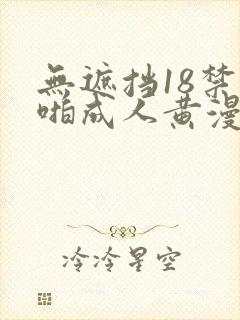 無遮挡18禁
啪成人黄漫
冷冷星空